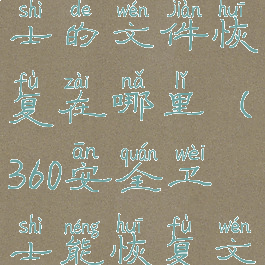 shì de wén jiàn huī
士的文件恢
fù zài nǎ lǐ
复在哪里(
ān quán wèi
360安全卫
shì néng huī fù wén
士能恢复文